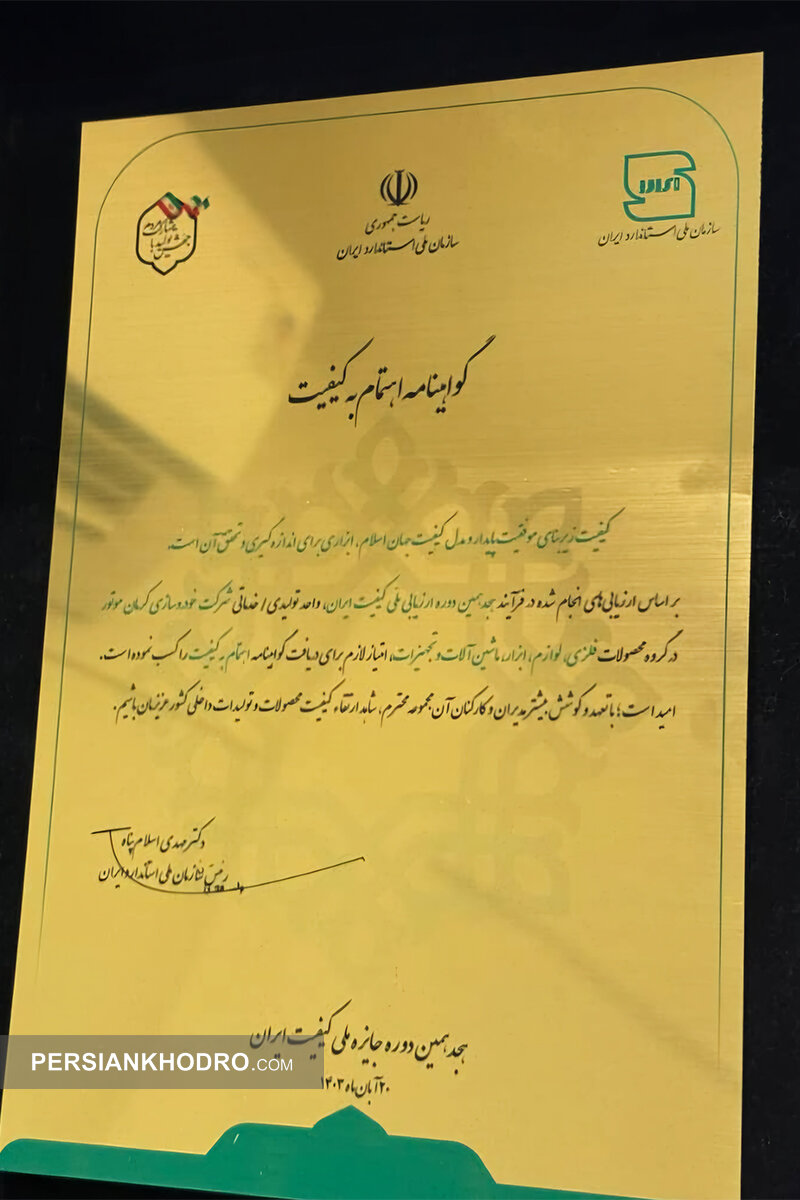 جهش تولید با
مشارکت مردم
ریاست جمهوری
سازمان ملی استاندارد ایران
سازمان ملی استاندارد ایران
گواهینامه اهتمام به کیفیت
کیفیت زیربنای موفقیت پایدار و مدل کیفیت جهان اسلام، ابزاری برای اندازه گیری و تحقق آن است.
بر اساس ارزیابی‌های انجام شده در فرآیند هجدهمین دوره ارزیابی ملی کیفیت ایران، واحد تولیدی / خدماتی شرکت خودروسازی کرمان موتور
در گروه محصولات فلزی، لوازم، ابزار، ماشین آلات و تجهیزات، امتیاز لازم برای دریافت گواهینامه اهتمام به کیفیت را کسب نموده است.
امید است؛ با تعهد و کوشش بیشتر مدیران و کارکنان آن مجموعه محترم، شاهد ارتقاء کیفیت محصولات و تولیدات داخلی کشور عزیزمان باشیم.
دکتر مهدی اسلام پناه
رئیس سازمان ملی استاندارد ایران
هجدهمین دوره جایزه ملی کیفیت ایران
۲۰ آبان ماه ۱۴۰۳
PERSIANKHODRO.COM